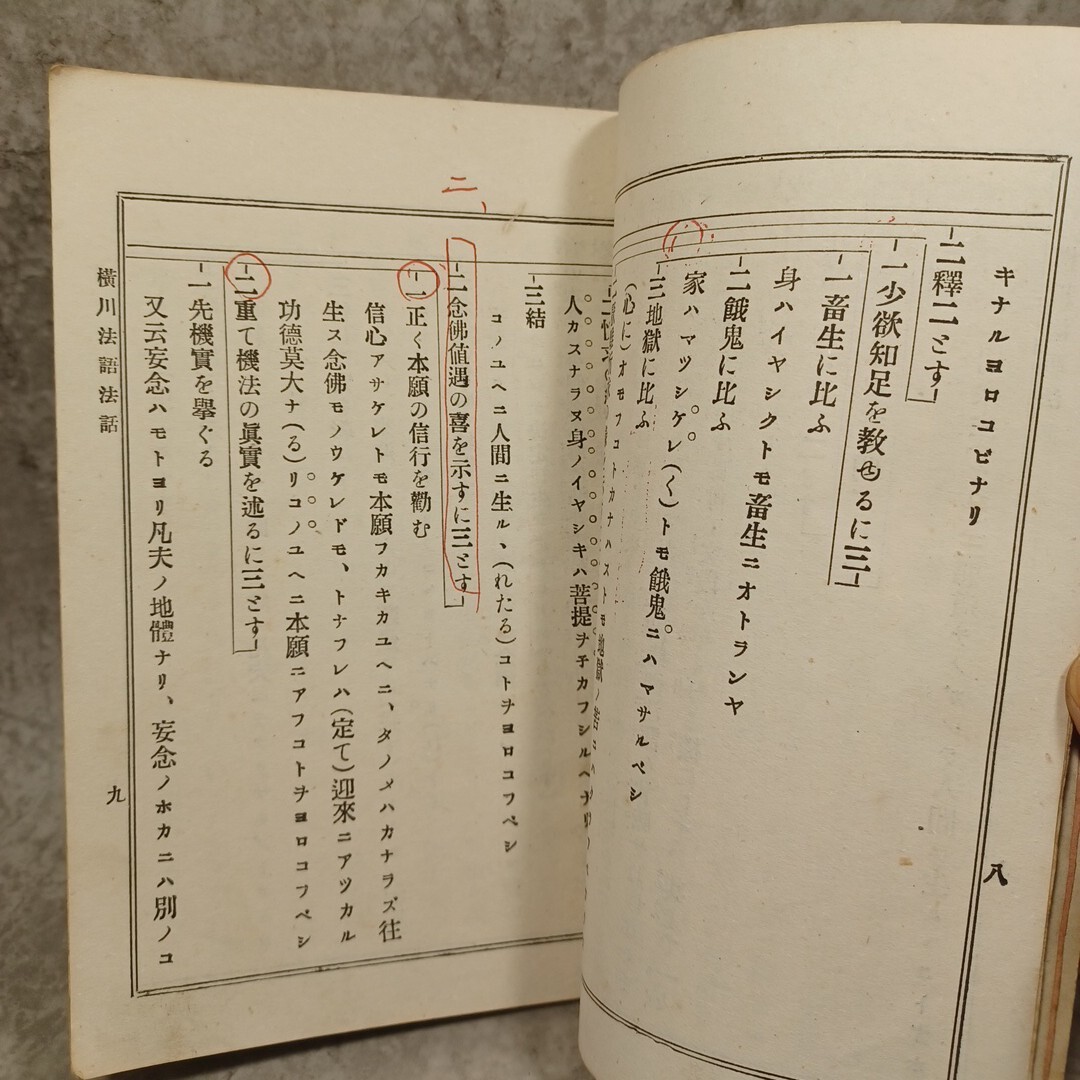 キナルヨロコビナリ
二釋二とす
一少欲知足を教せるに三
一畜生に比ふ
身ハイヤシクトモ畜生ニオトランヤ
二餓鬼に比ふ
家ハマツシケレ(く)トモ餓鬼ニハマサルベシ
三地獄に比ふ
(心に)オモフコトカナハストモ地獄ノ
八
人カスナラヌ身ノイヤシキハ菩提ヲネカフシルヘナリ
三結
コノユヘニ人間ニ生ル、(れたる)コトヲヨロコフベシ
二、
二念佛値遇の喜を示すに三とす
一正く本願の信行を勸む
信心アサケレトモ本願フカキカユヘニ、タノメハカナラズ往
生ス念佛モノウケレドモ、トナフレハ(定て)迎來ニアツカル
功德莫大ナ(る)リコノユヘニ本願ニアフコトヲヨロコフベシ
二重て機法の眞實を述るに三とす
一先機實を擧ぐる
又云妄念ハモトヨリ凡夫ノ地體ナリ、妄念ノホカニハ別ノコ
橫川法語法話
九